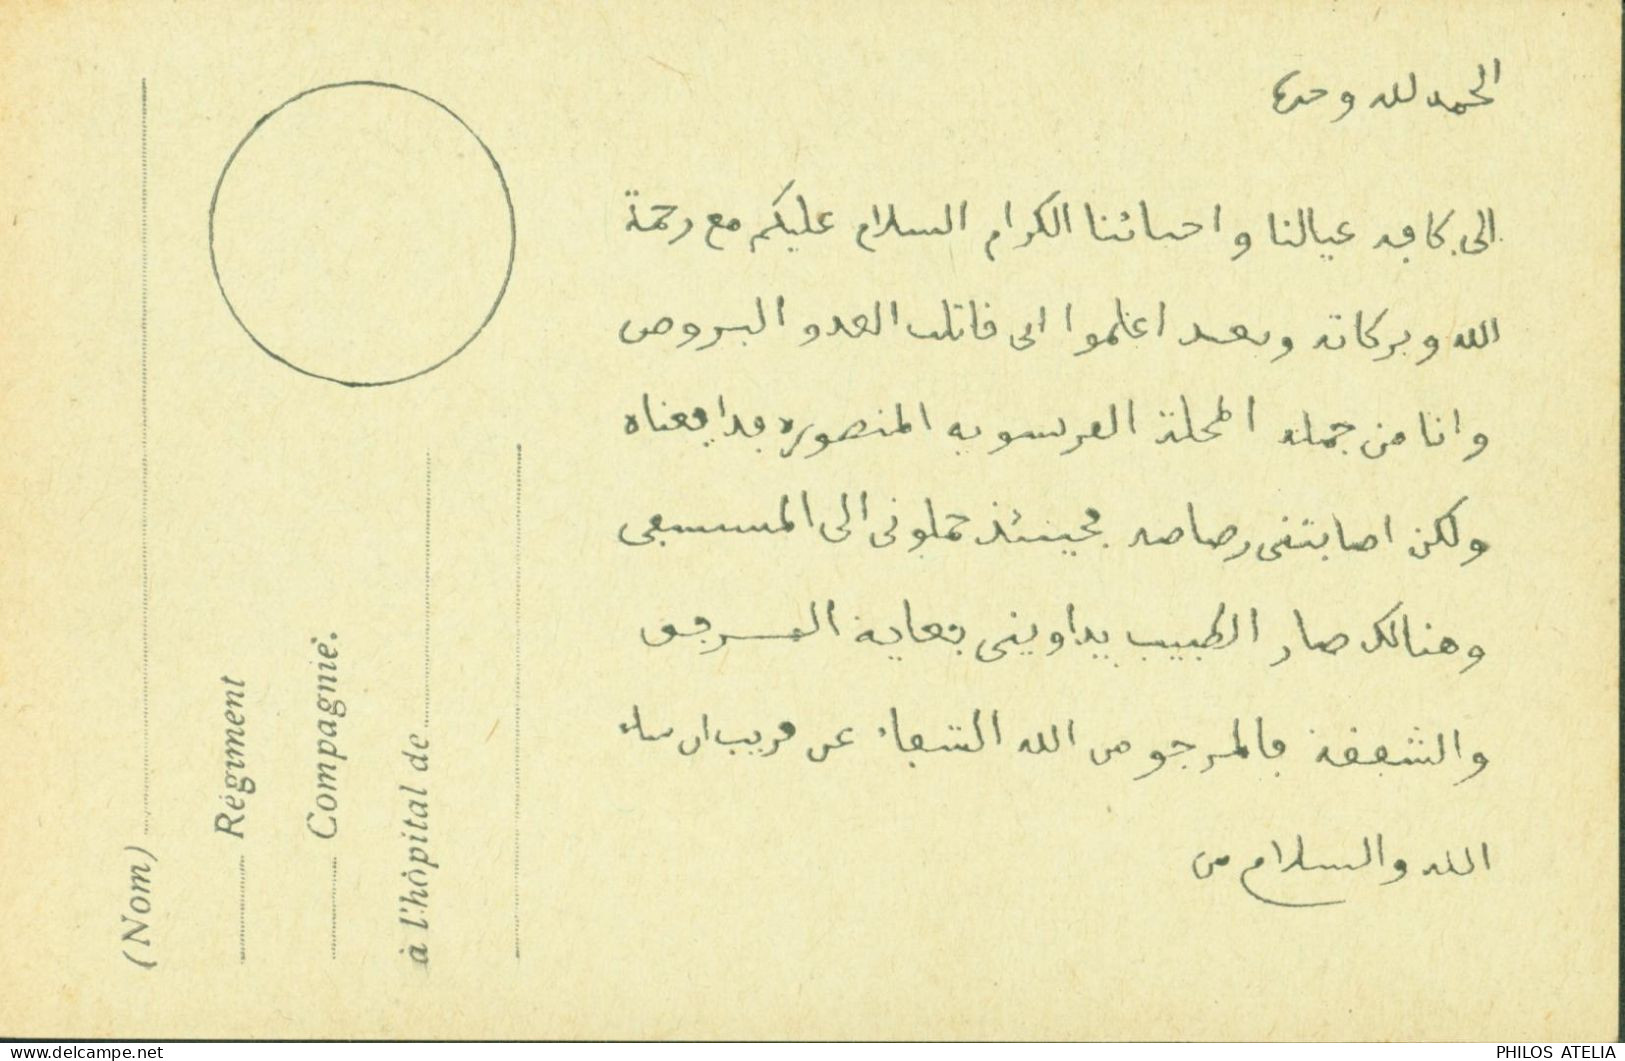 الحمد لله وحده
الى كافة عيالنا واحبائنا الكرام السلام عليكم مع رحمة
الله وبركاته وبعد اعلموا انى قاتلت العدو البروص
وانا من جملة المحلة الفرنسوية المنصوره فدافعناه
ولكن اصابتنى رصاصه فحينئذ حملونى الى المستشفى
وهنالك صار الطبيب يداوينى بغاية الرفق
والشفقة فالمرجو من الله الشفاء عن قريب ان شاء
الله والسلام من
(Nom)
Régiment
Compagnie.
à l'hôpital de
PHILOS ATELIA
www.delcampe.net